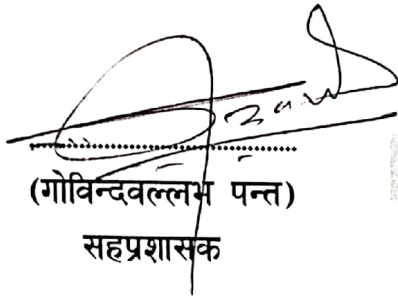 (गोविन्दवल्लभ पन्त)
सहप्रशासक